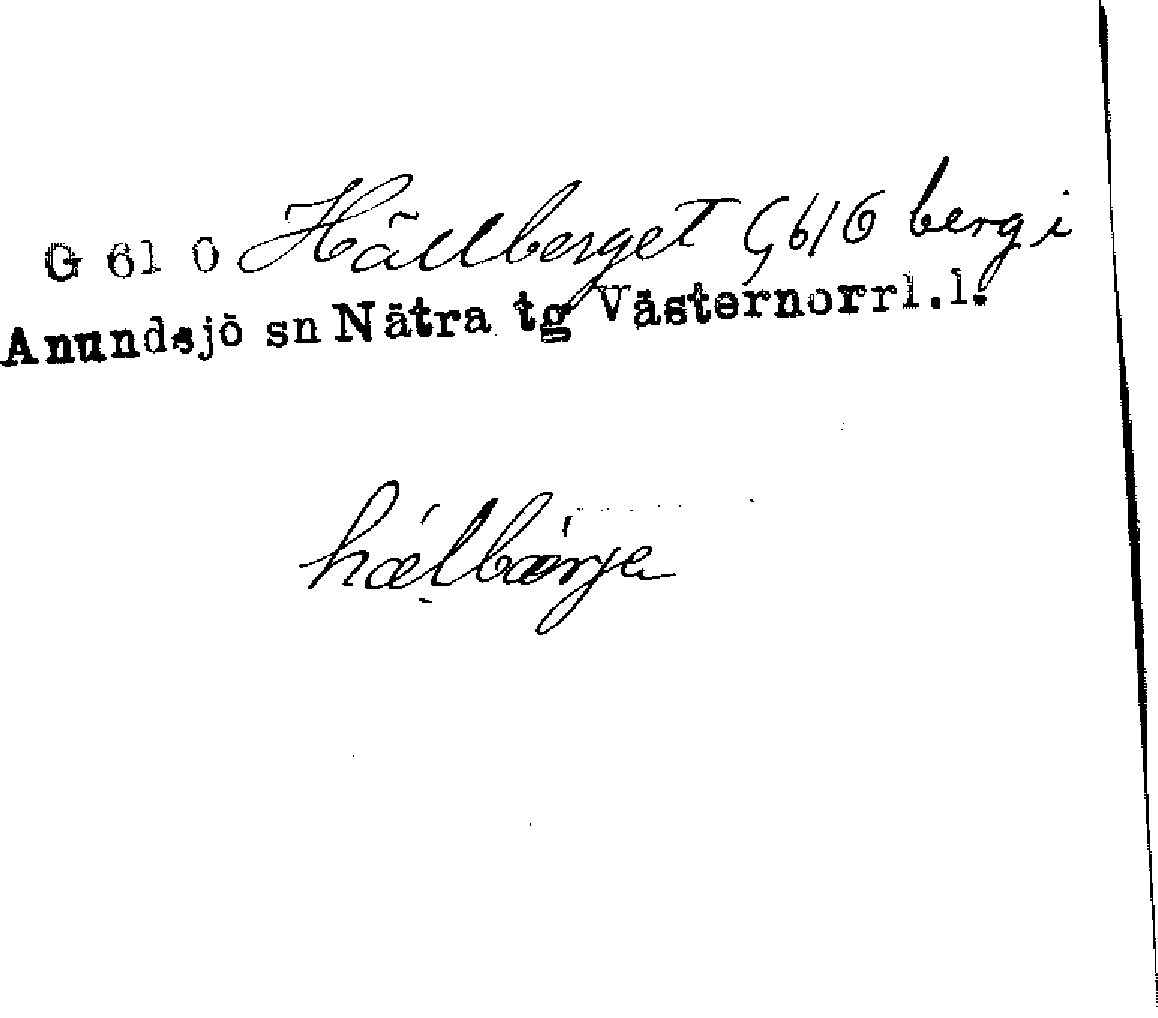 G 61 O Hällberget G61O berg i
Anundsjö sn Nätra tg Västernorrl.l.
hǽ̣lbæ̀rje